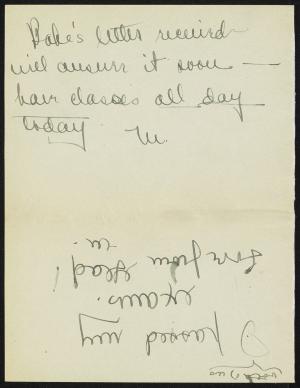 Babe's letter received
will answer it soon —
have classes all day
today M.
I
passed my
exams.
M.